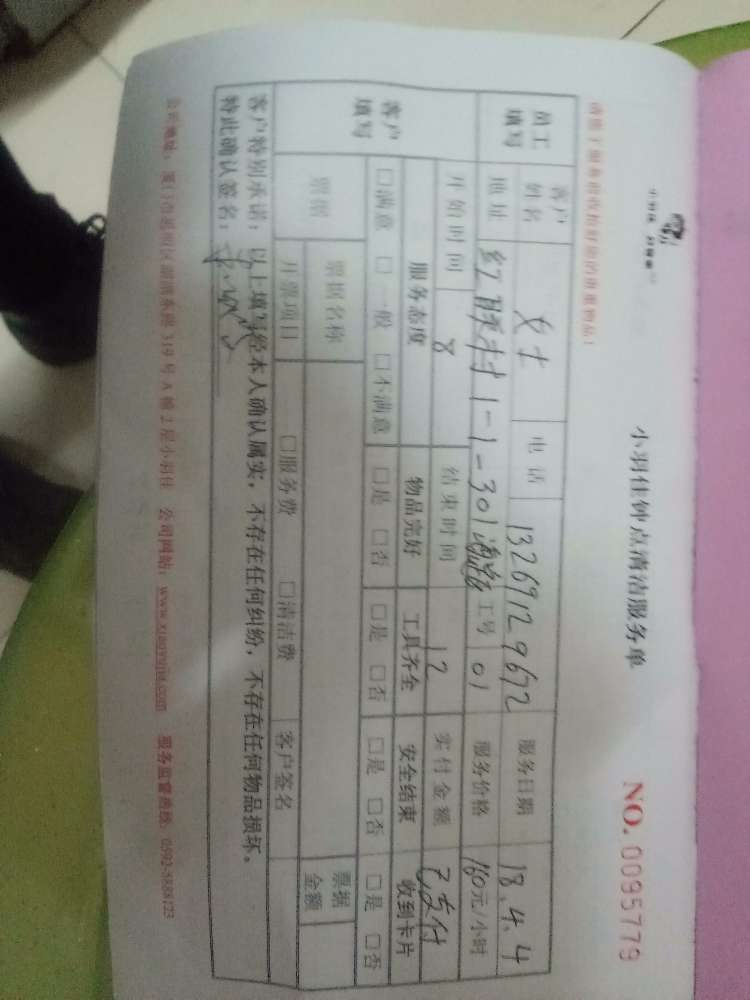 小羽佳钟点清洁服务单
NO. 0095779
员工填写 客户姓名 女士 电话 13269129672 服务日期 18.4.4
地址 红联村1-1-301 工号 01 服务价格 160元/小时
开始时间 8 结束时间 12 实付金额 已支付
客户填写 服务态度 物品完好 工具齐全 安全结束 收到卡片
□满意 □一般 □不满意 □是 □否 □是 □否 □是 □否 □是 □否
票据 票据名称 票据金额
开票项目 □服务费 □清洁费 客户签名
客户特别承诺：以上填写经本人确认属实，不存在任何纠纷，不存在任何物品损坏。
特此确认签名：
319号A幢2层小羽佳 公司网站：www.xiaoyujia.com 服务监督热线：0592-5888123